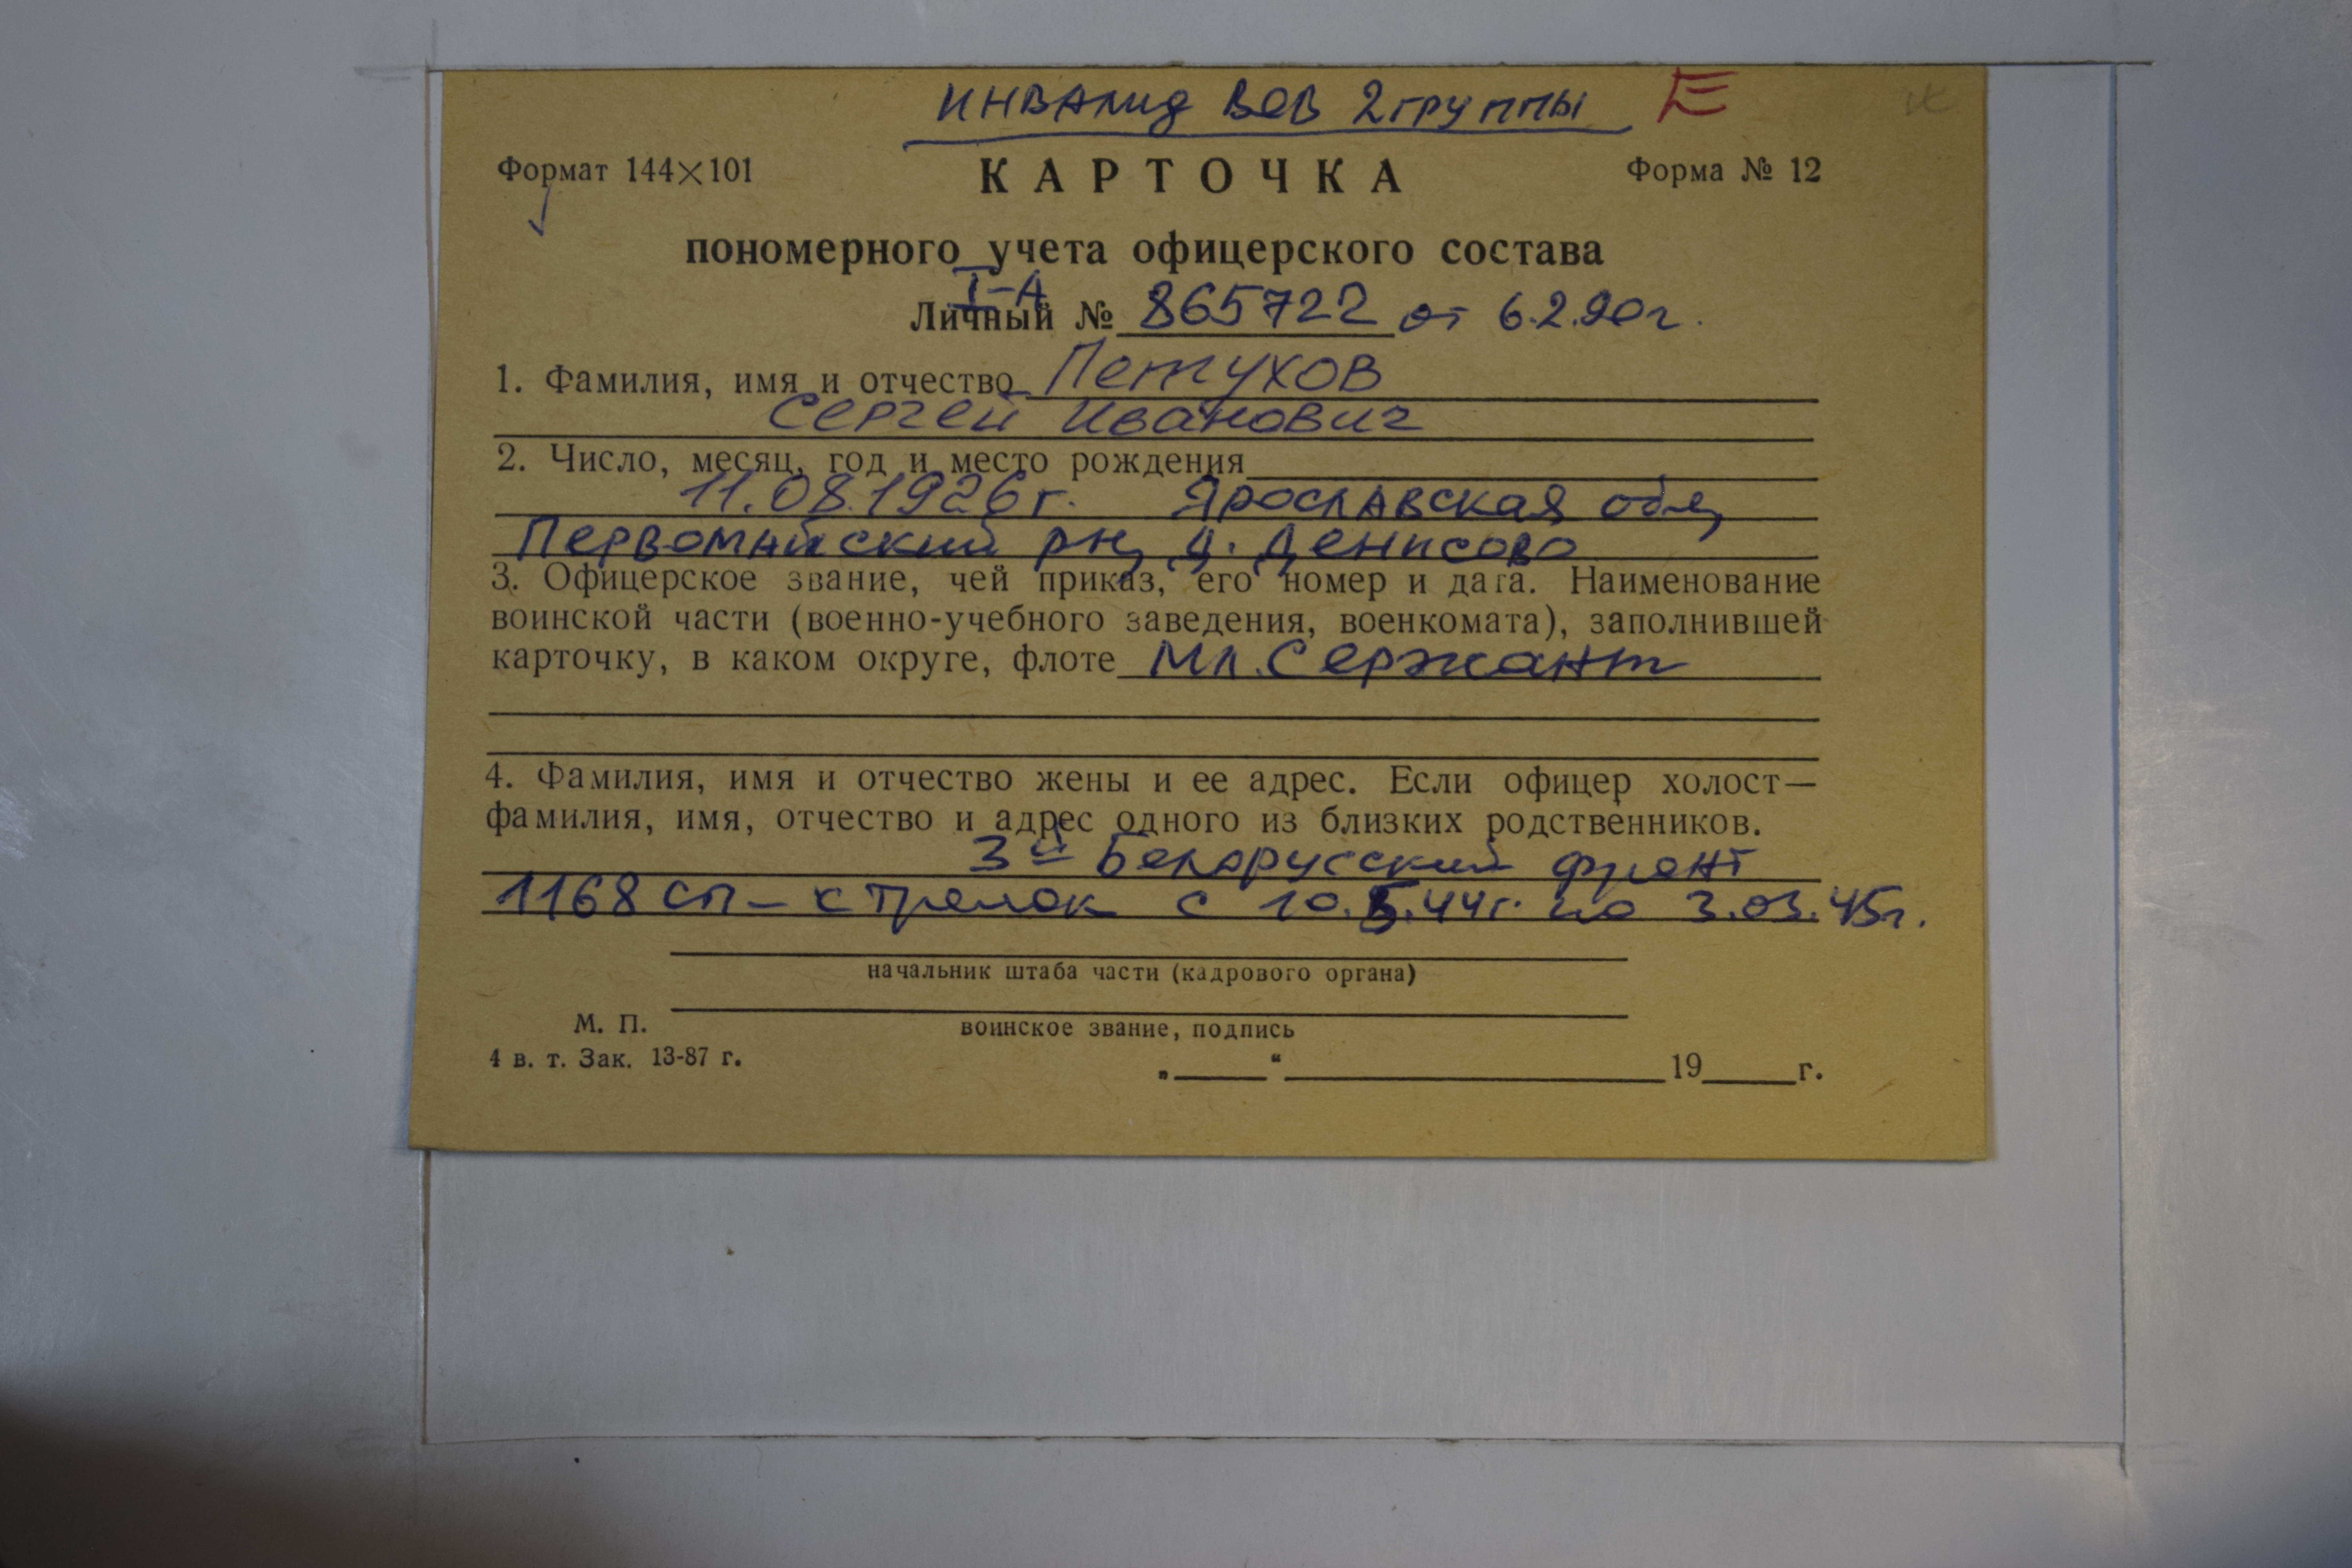 инвалид ВОВ 2 группы Е
Формат 144×101 КАРТОЧКА Форма № 12
пономерного учета офицерского состава
I-А
Личный № 865722 от 6.2.90г.
1. Фамилия, имя и отчество Петухов
Сергей Иванович
2. Число, месяц, год и место рождения
11.08.1926г. Ярославская обл,
Первомайский рн, д. Денисово
3. Офицерское звание, чей приказ, его номер и дата. Наименование
воинской части (военно-учебного заведения, военкомата), заполнившей
карточку, в каком округе, флоте Мл. Сержант
4. Фамилия, имя и отчество жены и ее адрес. Если офицер холост—
фамилия, имя, отчество и адрес одного из близких родственников.
3й Белорусский фронт
1168 сп – стрелок с 10.5.44г. по 3.03.45г.
начальник штаба части (кадрового органа)
М. П. воинское звание, подпись
4 в. т. Зак. 13-87 г.
„ “ 19 г.